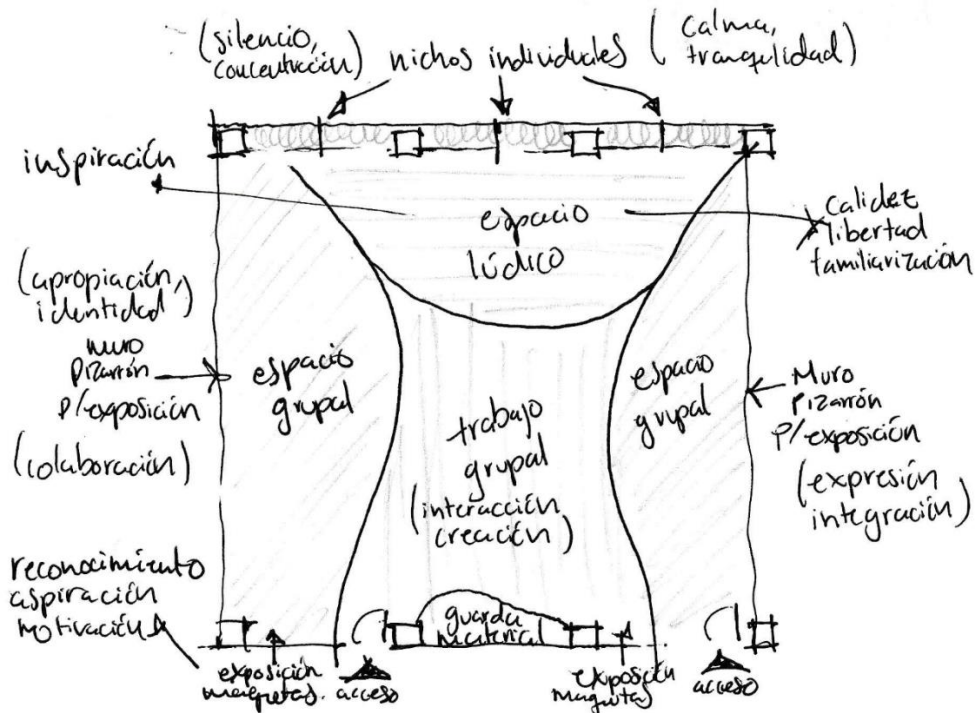 (silencio,
concentración)
nichos individuales
(calma,
tranquilidad)
inspiración
espacio
lúdico
Calidez
libertad
familiarización
(apropiación,
identidad)
muro
pizarrón
p/exposición
(colaboración)
espacio
grupal
trabajo
grupal
(interacción
creación)
espacio
grupal
Muro
pizarrón
p/exposición
(expresión
integración)
reconocimiento
aspiración
motivación
guarda
material
exposición
maquetas.
acceso
exposición
maquetas
acceso